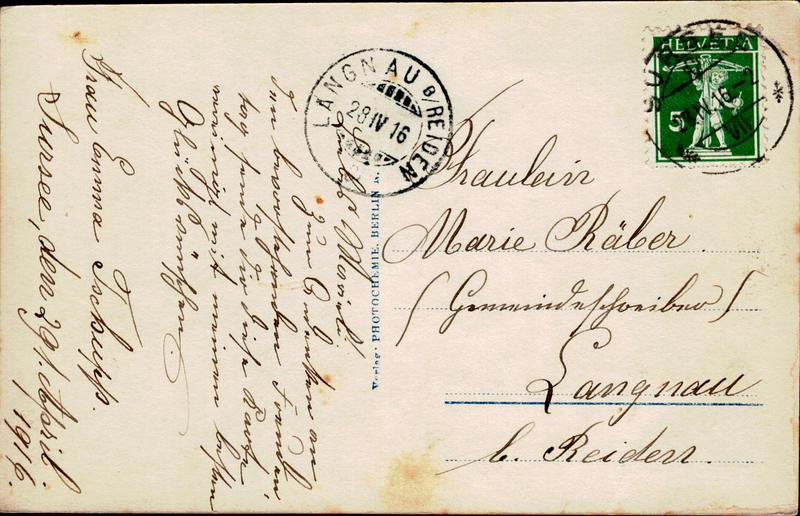 Liebes Marieli!
Zum Andenken an
den bevorstehenden Freuden-
tag sende dir diese Karte
mit meinen besten
Glückwünschen.
Frau Emma Tschupp.
Sursee, den 29. April
1916.
LANGNAU B/REIDEN
28 IV 16
Verlag: PHOTOCHEMIE, BERLIN
HELVETIA
5
SURSEE
Fräulein
Marie Räber.
(Gemeindeschreiber)
Langnau
b. Reiden.